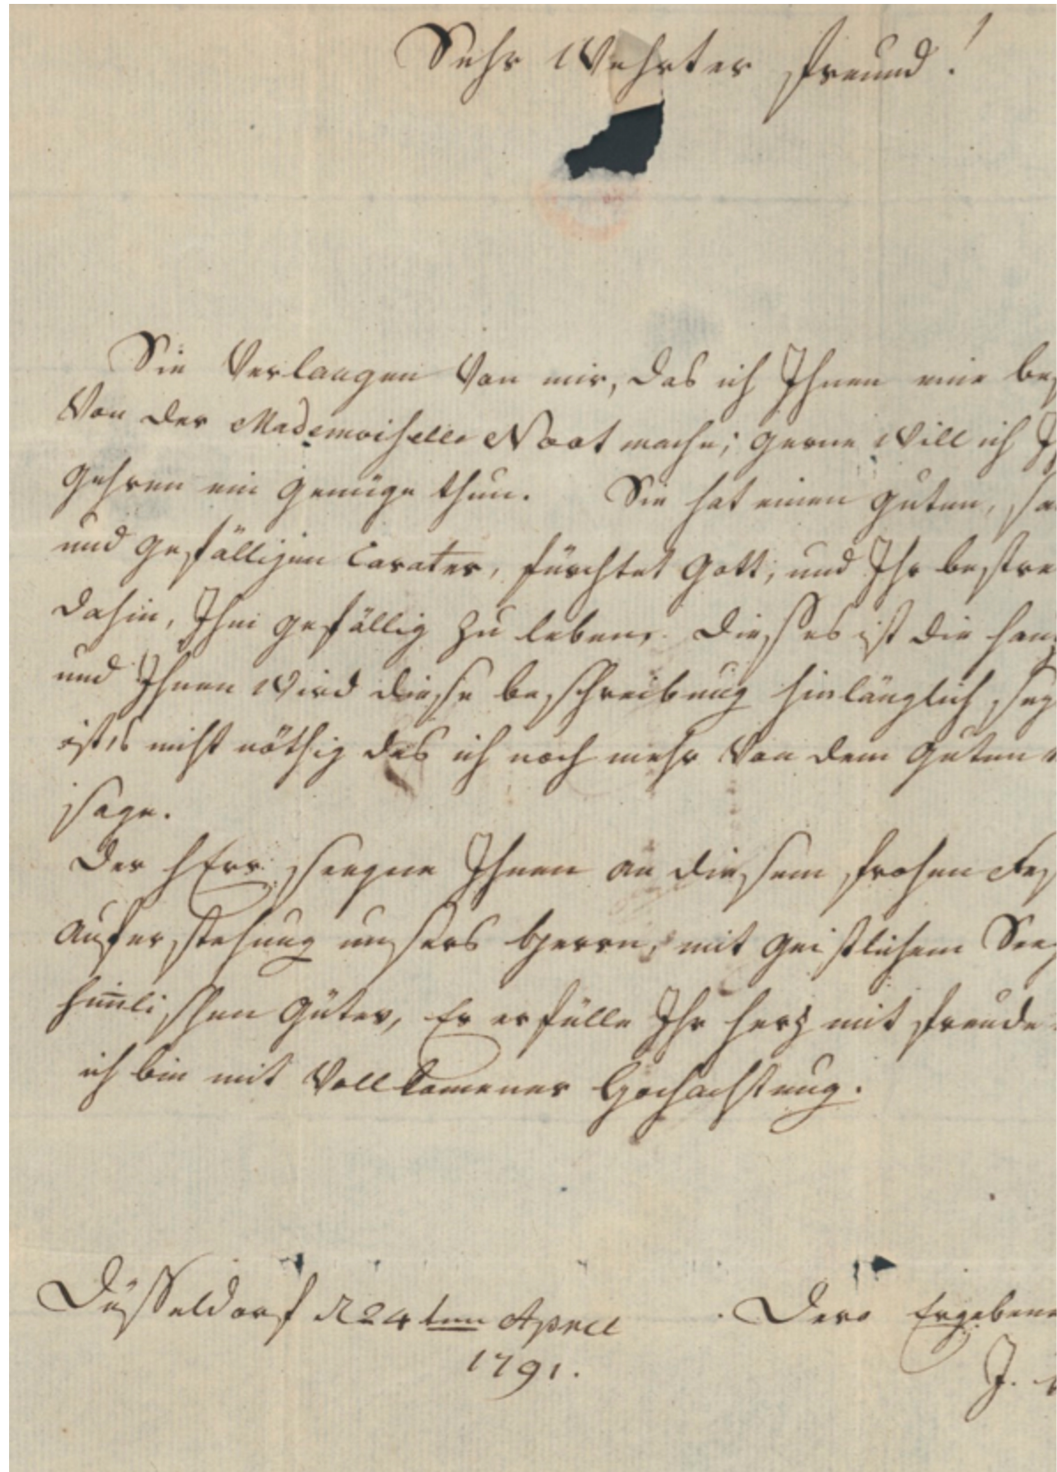 Sehr Wehrter Freund!
Sie Verlangen Von mir, das ich Ihnen eine bes
Von der Mademoiselle Noot mache; gerne Will ich I
gehren ein genüge thun. Sie hat einen guten, sa
und gefälligen Caracter, fürchtet Gott, und Ihr bestre
dahin, Ihm gefällig zu leben, dieses ist die hau
und Ihnen Wird diese beschreibung hinlänglich sey
ist's nicht nöthig das ich noch mehr Von dem guten
sage.
Der HErr seegne Ihnen an diesem frohen Fes
auferstehung unsers Herrn, mit geistlichem See
him̅lischen Güter, Er erfülle Ihr herz mit freude
ich bin mit Vollkomener Hochachtung.
Düsseldorf d 24ten Aprill
1791.
Dero Ergebene
J.